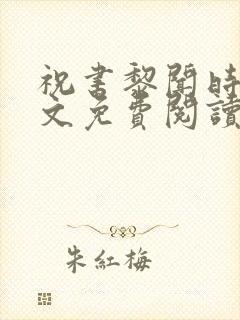 祝書黎聞時
文免費閱讀
朱紅梅